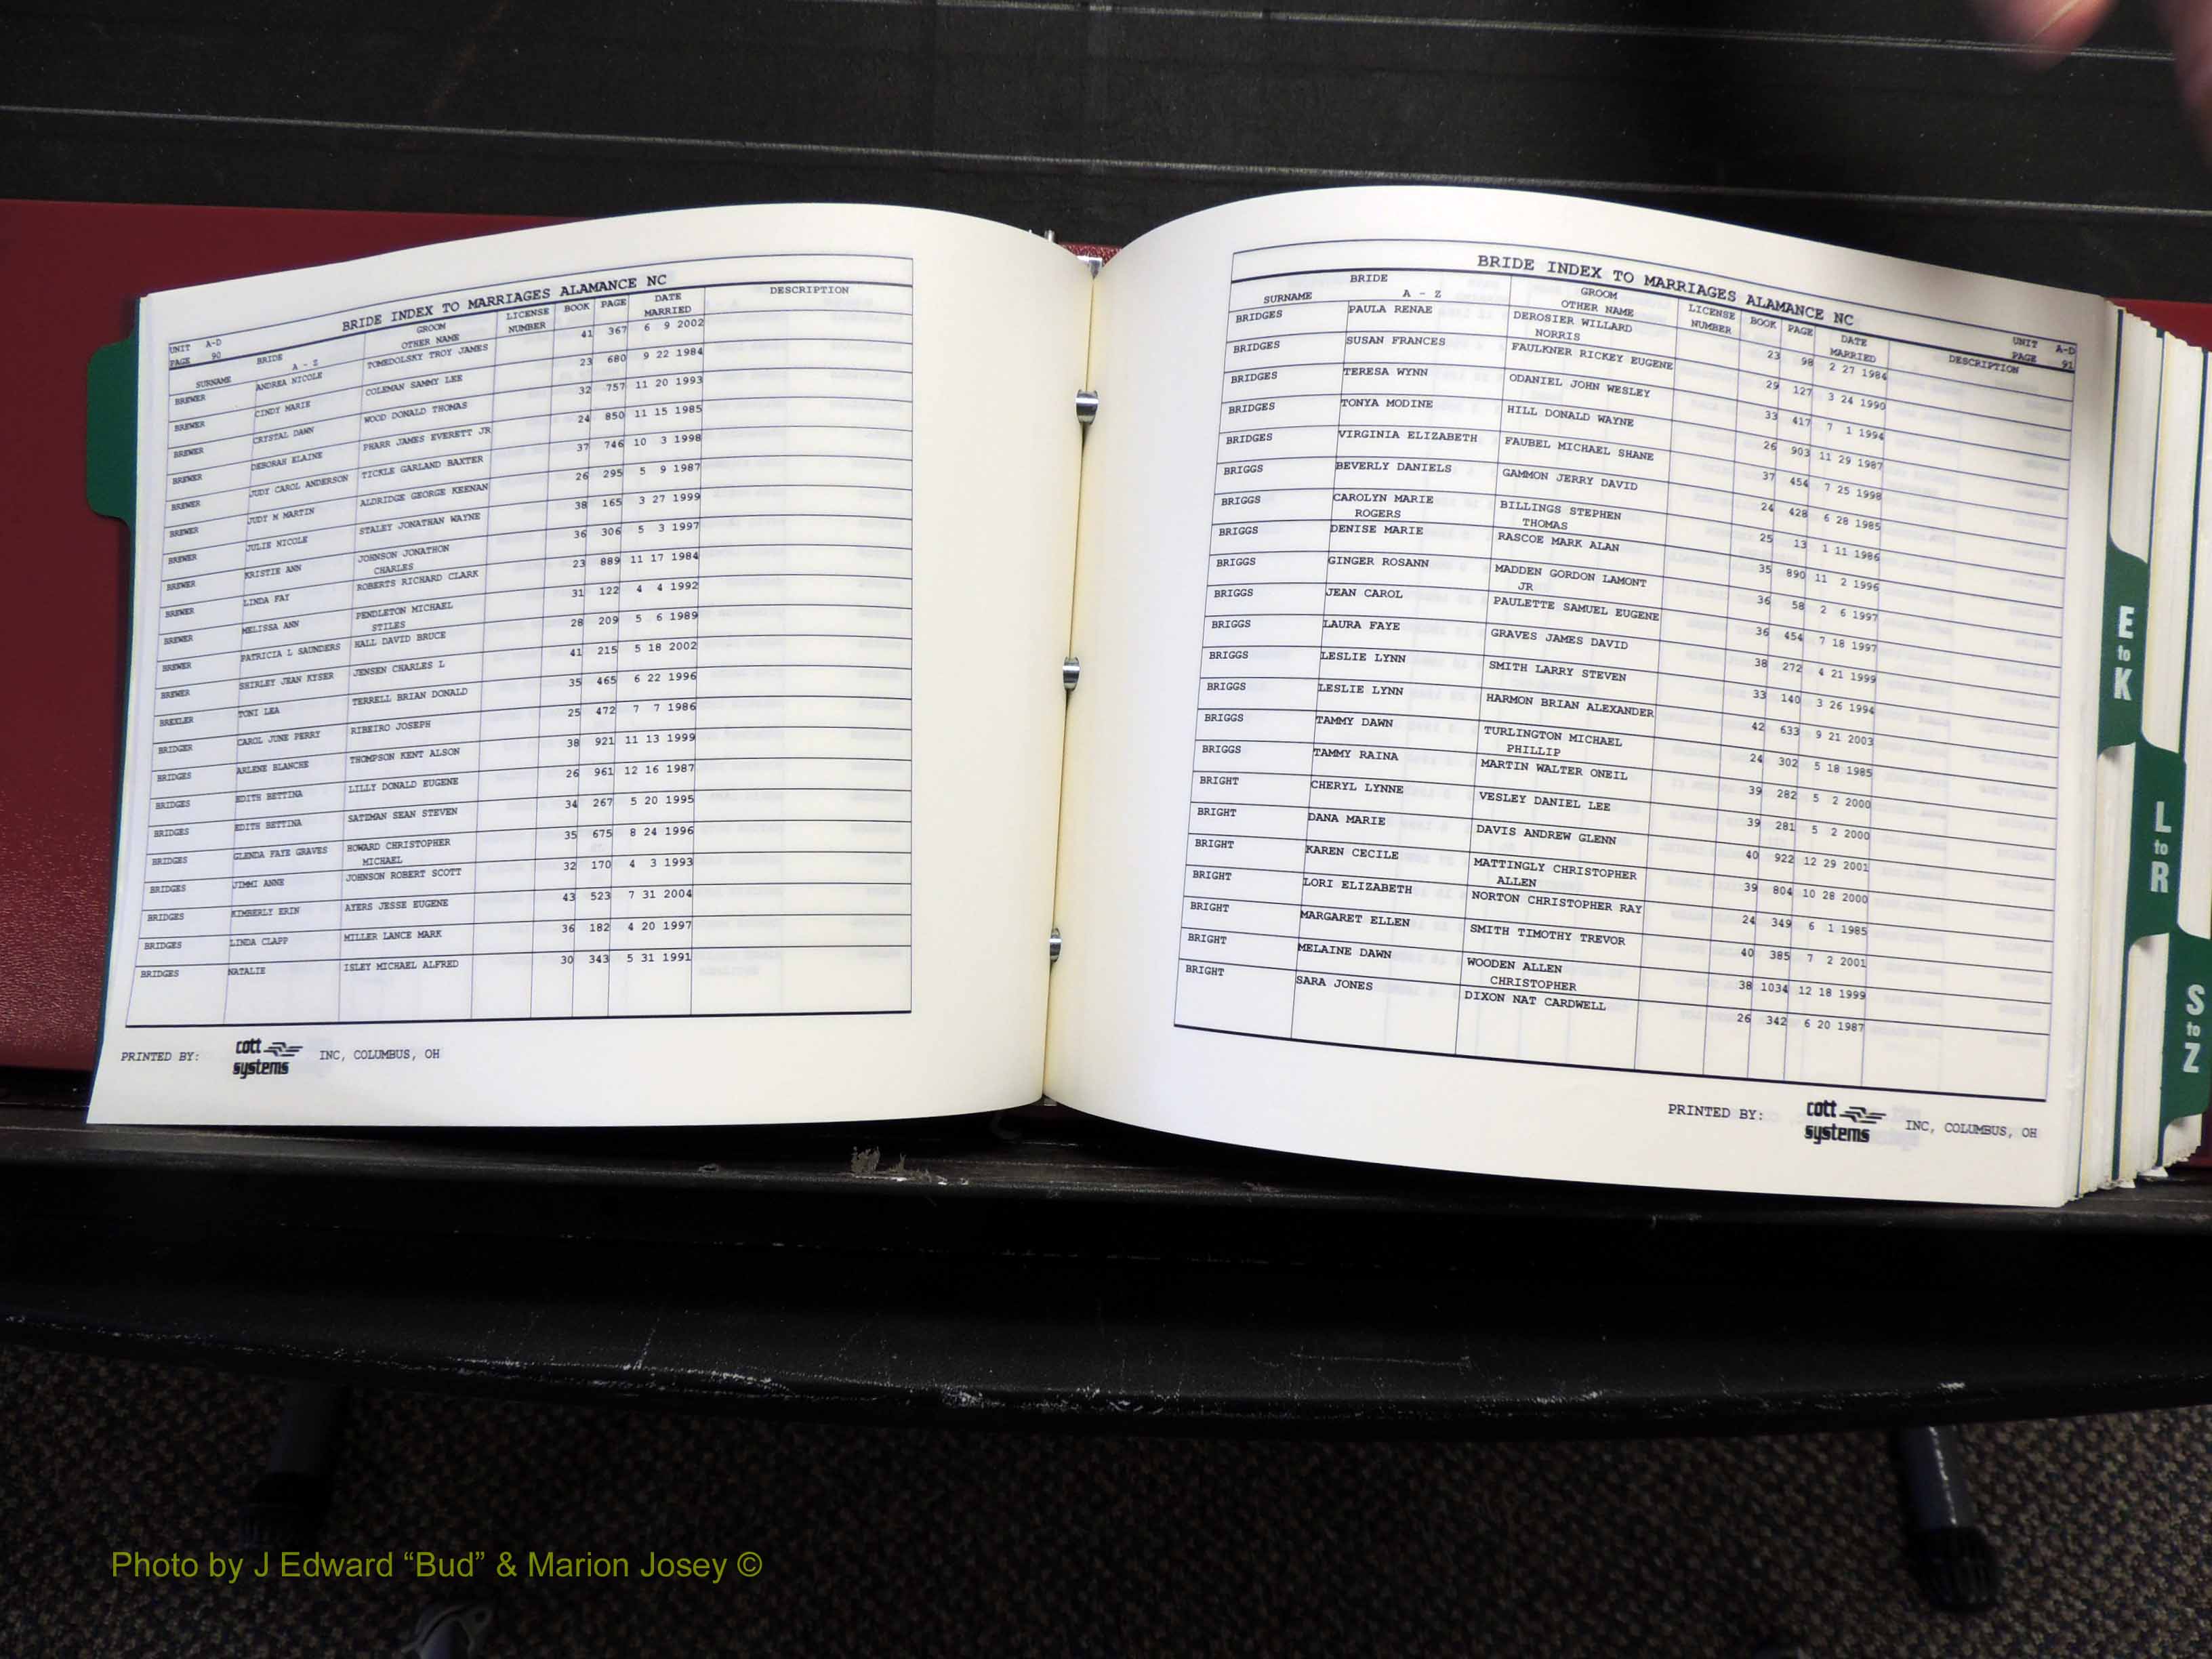 BRIDE INDEX TO MARRIAGES ALAMANCE NC
UNIT A-D
PAGE 90
BRIDE GROOM LICENSE BOOK PAGE DATE DESCRIPTION
SURNAME A - Z OTHER NAME NUMBER MARRIED
BREWER ANDREA NICOLE TOMEDOLSKY TROY JAMES 41 367 6 9 2002
BREWER CINDY MARIE COLEMAN SAMMY LEE 23 680 9 22 1984
BREWER CRYSTAL DAWN WOOD DONALD THOMAS 32 757 11 20 1993
BREWER DEBORAH ELAINE PHARR JAMES EVERETT JR 24 850 11 15 1985
BREWER JUDY CAROL ANDERSON TICKLE GARLAND BAXTER 37 746 10 3 1998
BREWER JUDY M MARTIN ALDRIDGE GEORGE KEENAN 26 295 5 9 1987
BREWER JULIE NICOLE STALEY JONATHAN WAYNE 38 165 3 27 1999
BREWER KRISTIE ANN JOHNSON JONATHON 36 306 5 3 1997
CHARLES
BREWER LINDA FAY ROBERTS RICHARD CLARK 23 889 11 17 1984
BREWER MELISSA ANN PENDLETON MICHAEL 31 122 4 4 1992
STILES
BREWER PATRICIA L SAUNDERS HALL DAVID BRUCE 28 209 5 6 1989
BREWER SHIRLEY JEAN KYSER JENSEN CHARLES L 41 215 5 18 2002
BREXLER TONI LEA TERRELL BRIAN DONALD 35 465 6 22 1996
BRIDGER CAROL JUNE PERRY RIBEIRO JOSEPH 25 472 7 7 1986
BRIDGES ARLENE BLANCHE THOMPSON KENT ALSON 38 921 11 13 1999
BRIDGES EDITH BETTINA LILLY DONALD EUGENE 26 961 12 16 1987
BRIDGES EDITH BETTINA SATZMAN SEAN STEVEN 34 267 5 20 1995
BRIDGES GLENDA FAYE GRAVES HOWARD CHRISTOPHER 35 675 8 24 1996
MICHAEL
BRIDGES JIMMI ANNE JOHNSON ROBERT SCOTT 32 170 4 3 1993
BRIDGES KIMBERLY ERIN AYERS JESSE EUGENE 43 523 7 31 2004
BRIDGES LINDA CLAPP MILLER LANCE MARK 36 182 4 20 1997
BRIDGES NATALIE ISLEY MICHAEL ALFRED 30 343 5 31 1991
PRINTED BY: cott systems INC, COLUMBUS, OH
BRIDE INDEX TO MARRIAGES ALAMANCE NC
UNIT A-D
PAGE 91
BRIDE GROOM LICENSE BOOK PAGE DATE DESCRIPTION
SURNAME A - Z OTHER NAME NUMBER MARRIED
BRIDGES PAULA RENAE DEROSIER WILLARD 23 98 2 27 1984
NORRIS
BRIDGES SUSAN FRANCES FAULKNER RICKEY EUGENE 29 127 3 24 1990
BRIDGES TERESA WYNN ODANIEL JOHN WESLEY 33 417 7 1 1994
BRIDGES TONYA MODINE HILL DONALD WAYNE 26 903 11 29 1987
BRIDGES VIRGINIA ELIZABETH FAUBEL MICHAEL SHANE 37 454 7 25 1998
BRIGGS BEVERLY DANIELS GAMMON JERRY DAVID 24 428 6 28 1985
BRIGGS CAROLYN MARIE BILLINGS STEPHEN 25 13 1 11 1986
ROGERS THOMAS
BRIGGS DENISE MARIE RASCOE MARK ALAN 35 890 11 2 1996
BRIGGS GINGER ROSANN MADDEN GORDON LAMONT 36 58 2 6 1997
JR
BRIGGS JEAN CAROL PAULETTE SAMUEL EUGENE 36 454 7 18 1997
BRIGGS LAURA FAYE GRAVES JAMES DAVID 38 272 4 21 1999
BRIGGS LESLIE LYNN SMITH LARRY STEVEN 33 140 3 26 1994
BRIGGS LESLIE LYNN HARMON BRIAN ALEXANDER 42 633 9 21 2003
BRIGGS TAMMY DAWN TURLINGTON MICHAEL 24 302 5 18 1985
PHILLIP
BRIGGS TAMMY RAINA MARTIN WALTER ONEIL 39 282 5 2 2000
BRIGHT CHERYL LYNNE VESLEY DANIEL LEE 39 281 5 2 2000
BRIGHT DANA MARIE DAVIS ANDREW GLENN 40 922 12 29 2001
BRIGHT KAREN CECILE MATTINGLY CHRISTOPHER 39 804 10 28 2000
ALLEN
BRIGHT LORI ELIZABETH NORTON CHRISTOPHER RAY 24 349 6 1 1985
BRIGHT MARGARET ELLEN SMITH TIMOTHY TREVOR 40 385 7 2 2001
BRIGHT MELAINE DAWN WOODEN ALLEN 38 1034 12 18 1999
CHRISTOPHER
BRIGHT SARA JONES DIXON NAT CARDWELL 26 342 6 20 1987
PRINTED BY: cott systems INC, COLUMBUS, OH
E to K
L to R
S to Z
Photo by J Edward “Bud” & Marion Josey ©